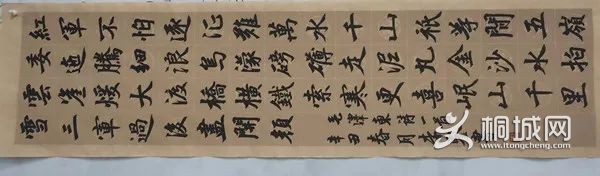 紅軍不怕遠征難萬水千山祇等閒五嶺
逶迤騰細浪烏濛磅礴走泥丸金沙水拍
雲崖暖大渡橋橫鐵索寒更喜岷山千里
雪三軍過後盡開顏
毛澤東詩一首
辛丑春月
桐城网
www.itongcheng.com